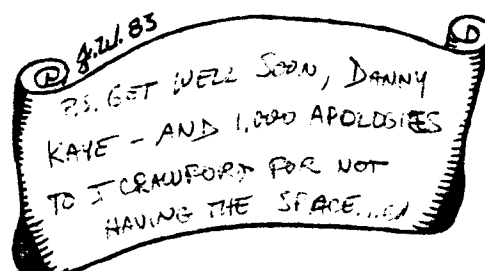 J.W. 83
P.S. GET WELL SOON, DANNY
KAYE - AND 1,000 APOLOGIES
TO J CRAWFORD FOR NOT
HAVING THE SPACE...